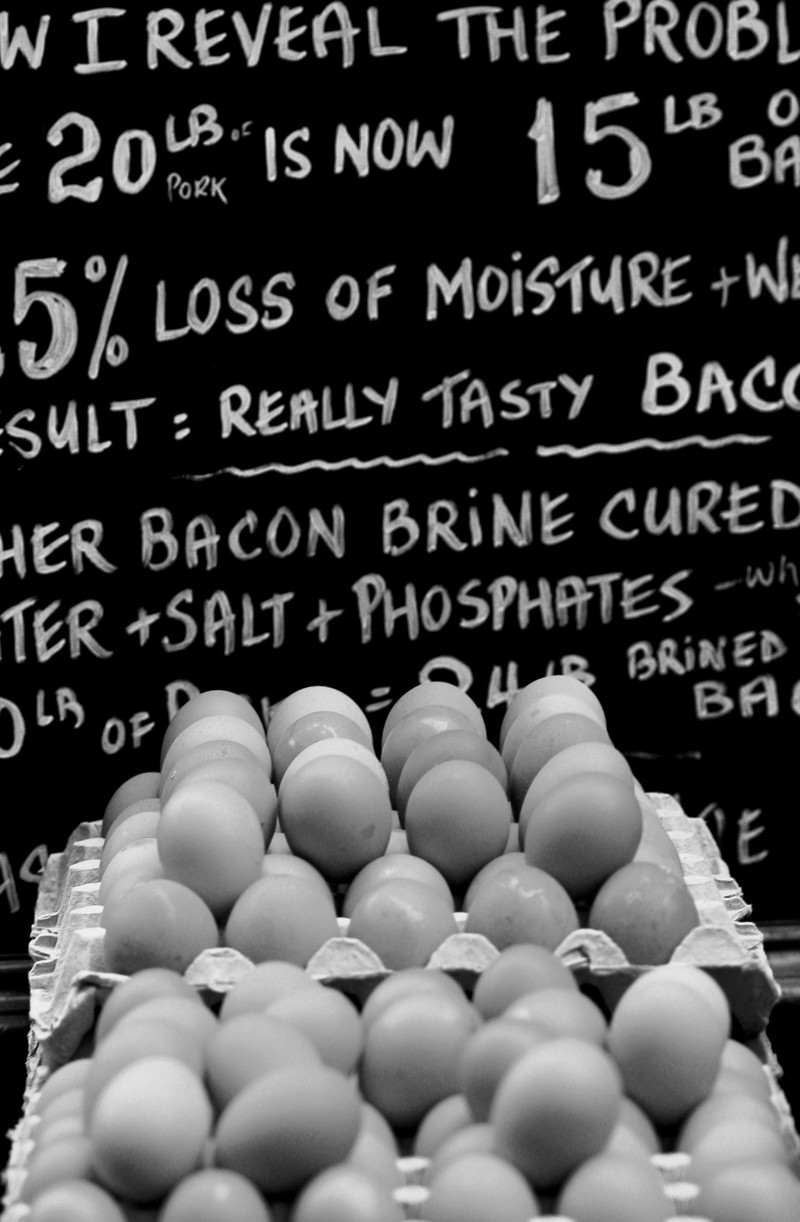 W I REVEAL THE PROBL
20 LB OF PORK IS NOW 15 LB O
BA
5% LOSS OF MOISTURE + WE
ESULT : REALLY TASTY BACO
HER BACON BRINE CURED
TER + SALT + PHOSPHATES - wh
0 LB OF = 24 LB BRINED
BAC